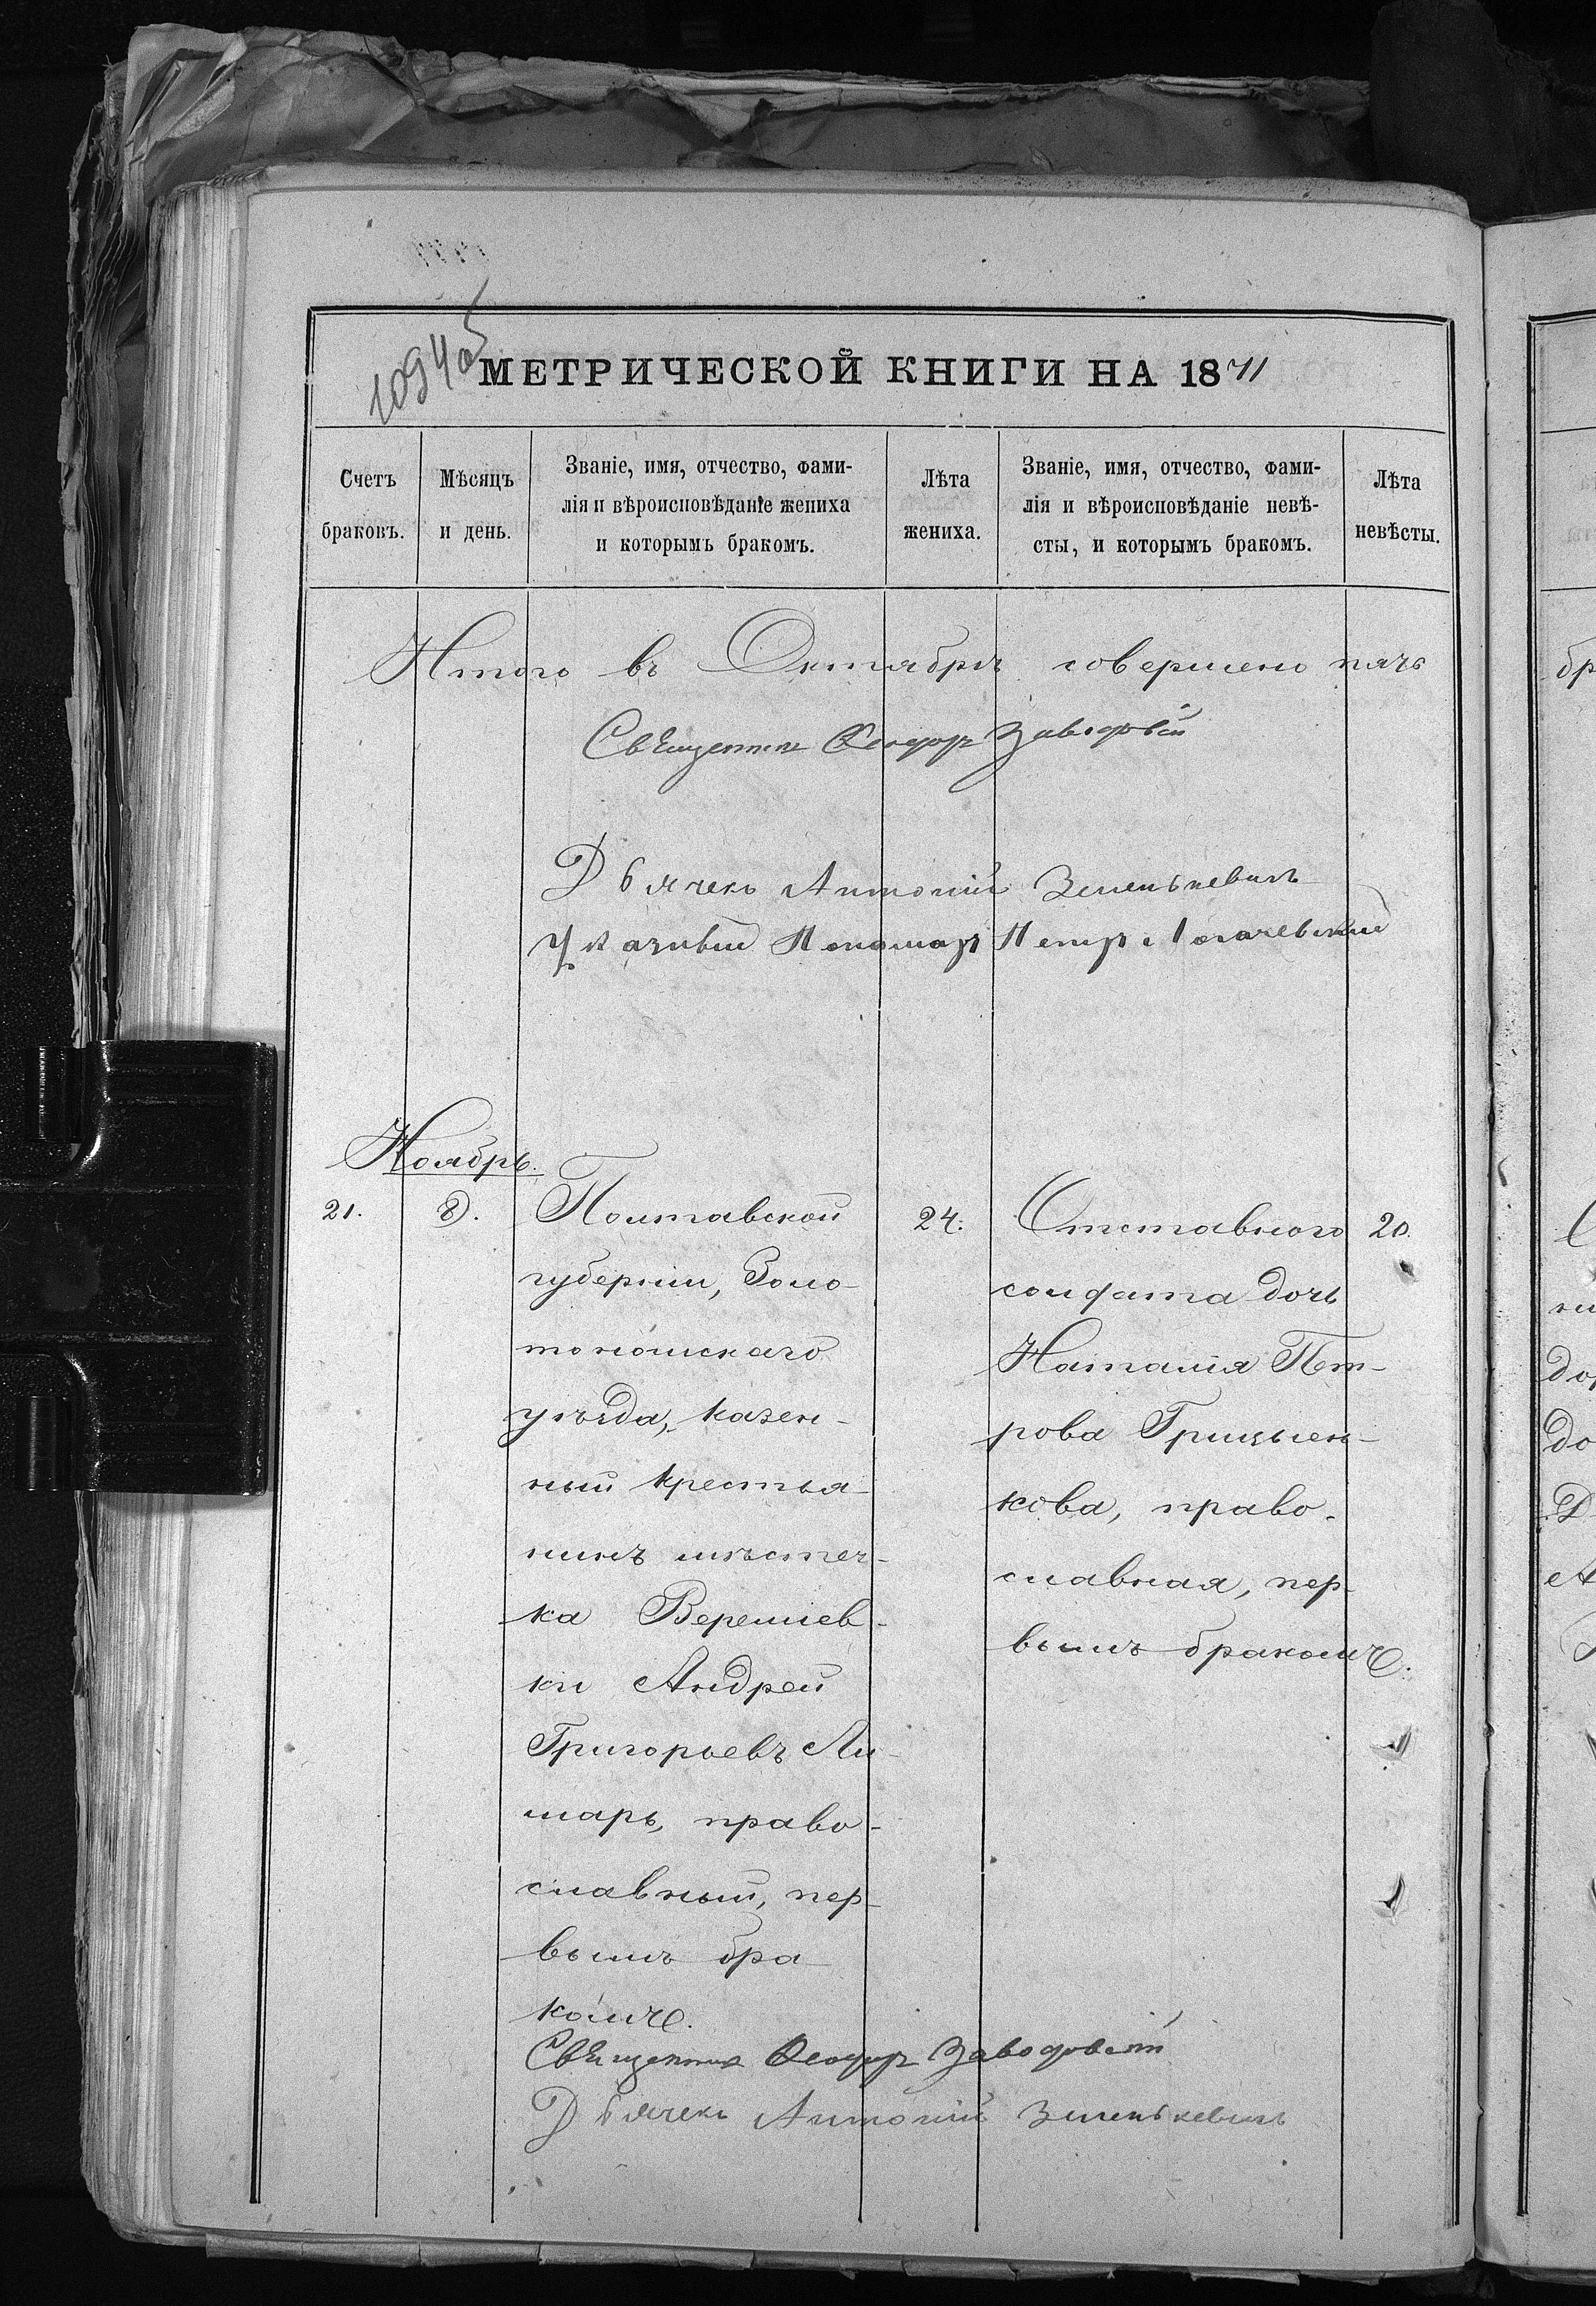 1094об
МЕТРИЧЕСКОЙ КНИГИ НА 1871
Счетъ браковъ.
Мѣсяцъ и день.
Званіе, имя, отчество, фами-
лія и вѣроисповѣданіе жениха
и которымъ бракомъ.
Лѣта жениха.
Званіе, имя, отчество, фами-
лія и вѣроисповѣданіе невѣ-
сты, и которымъ бракомъ.
Лѣта невѣсты.
Итого въ Октябрѣ совершено пять
Священникъ Ѳеодоръ
Дьячекъ Антоній
Пономарь Петръ
Ноябрь.
21.
8.
Полтавской
губерніи, Золо-
тоношскаго
уѣзда, казен-
ный крестья-
нинъ мѣстеч-
ка Веремiев-
ки Андрей
Григорьевъ Ли-
марь, право-
славный, пер-
вымъ бра
комъ.
24.
Отставного
солдата дочь
Наталія Пет-
рова Грицен-
кова, право-
славная, пер-
вымъ бракомъ.
20.
Священникъ Ѳеодоръ
Дьячекъ Антоній